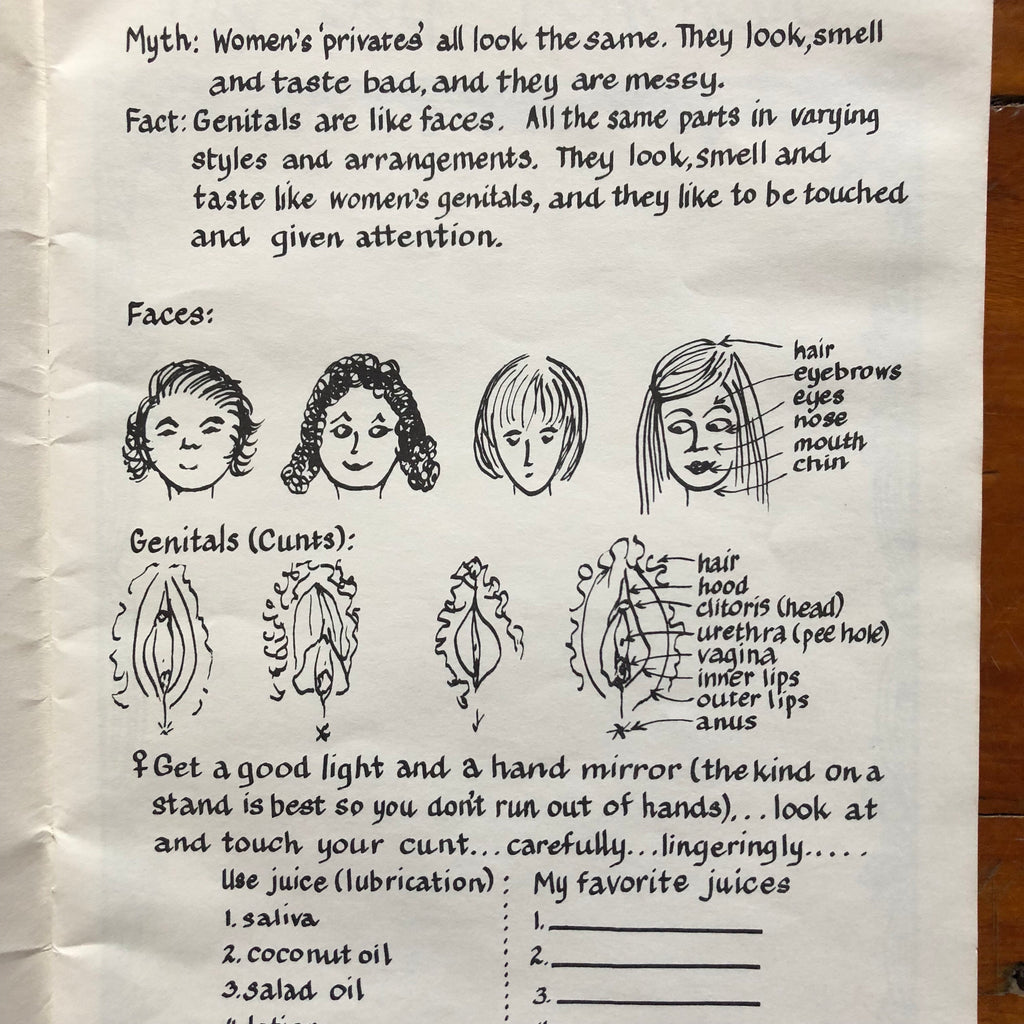 Myth: Women's 'privates' all look the same. They look, smell
and taste bad, and they are messy.
Fact: Genitals are like faces. All the same parts in varying
styles and arrangements. They look, smell and
taste like women's genitals, and they like to be touched
and given attention.
Faces:
hair
eyebrows
eyes
nose
mouth
chin
Genitals (Cunts):
hair
hood
clitoris (head)
urethra (pee hole)
vagina
inner lips
outer lips
anus
♀ Get a good light and a hand mirror (the kind on a
stand is best so you don't run out of hands)... look at
and touch your cunt... carefully... lingeringly.....
Use juice (lubrication):
1. saliva
2. coconut oil
3. salad oil
My favorite juices
1.
2.
3.